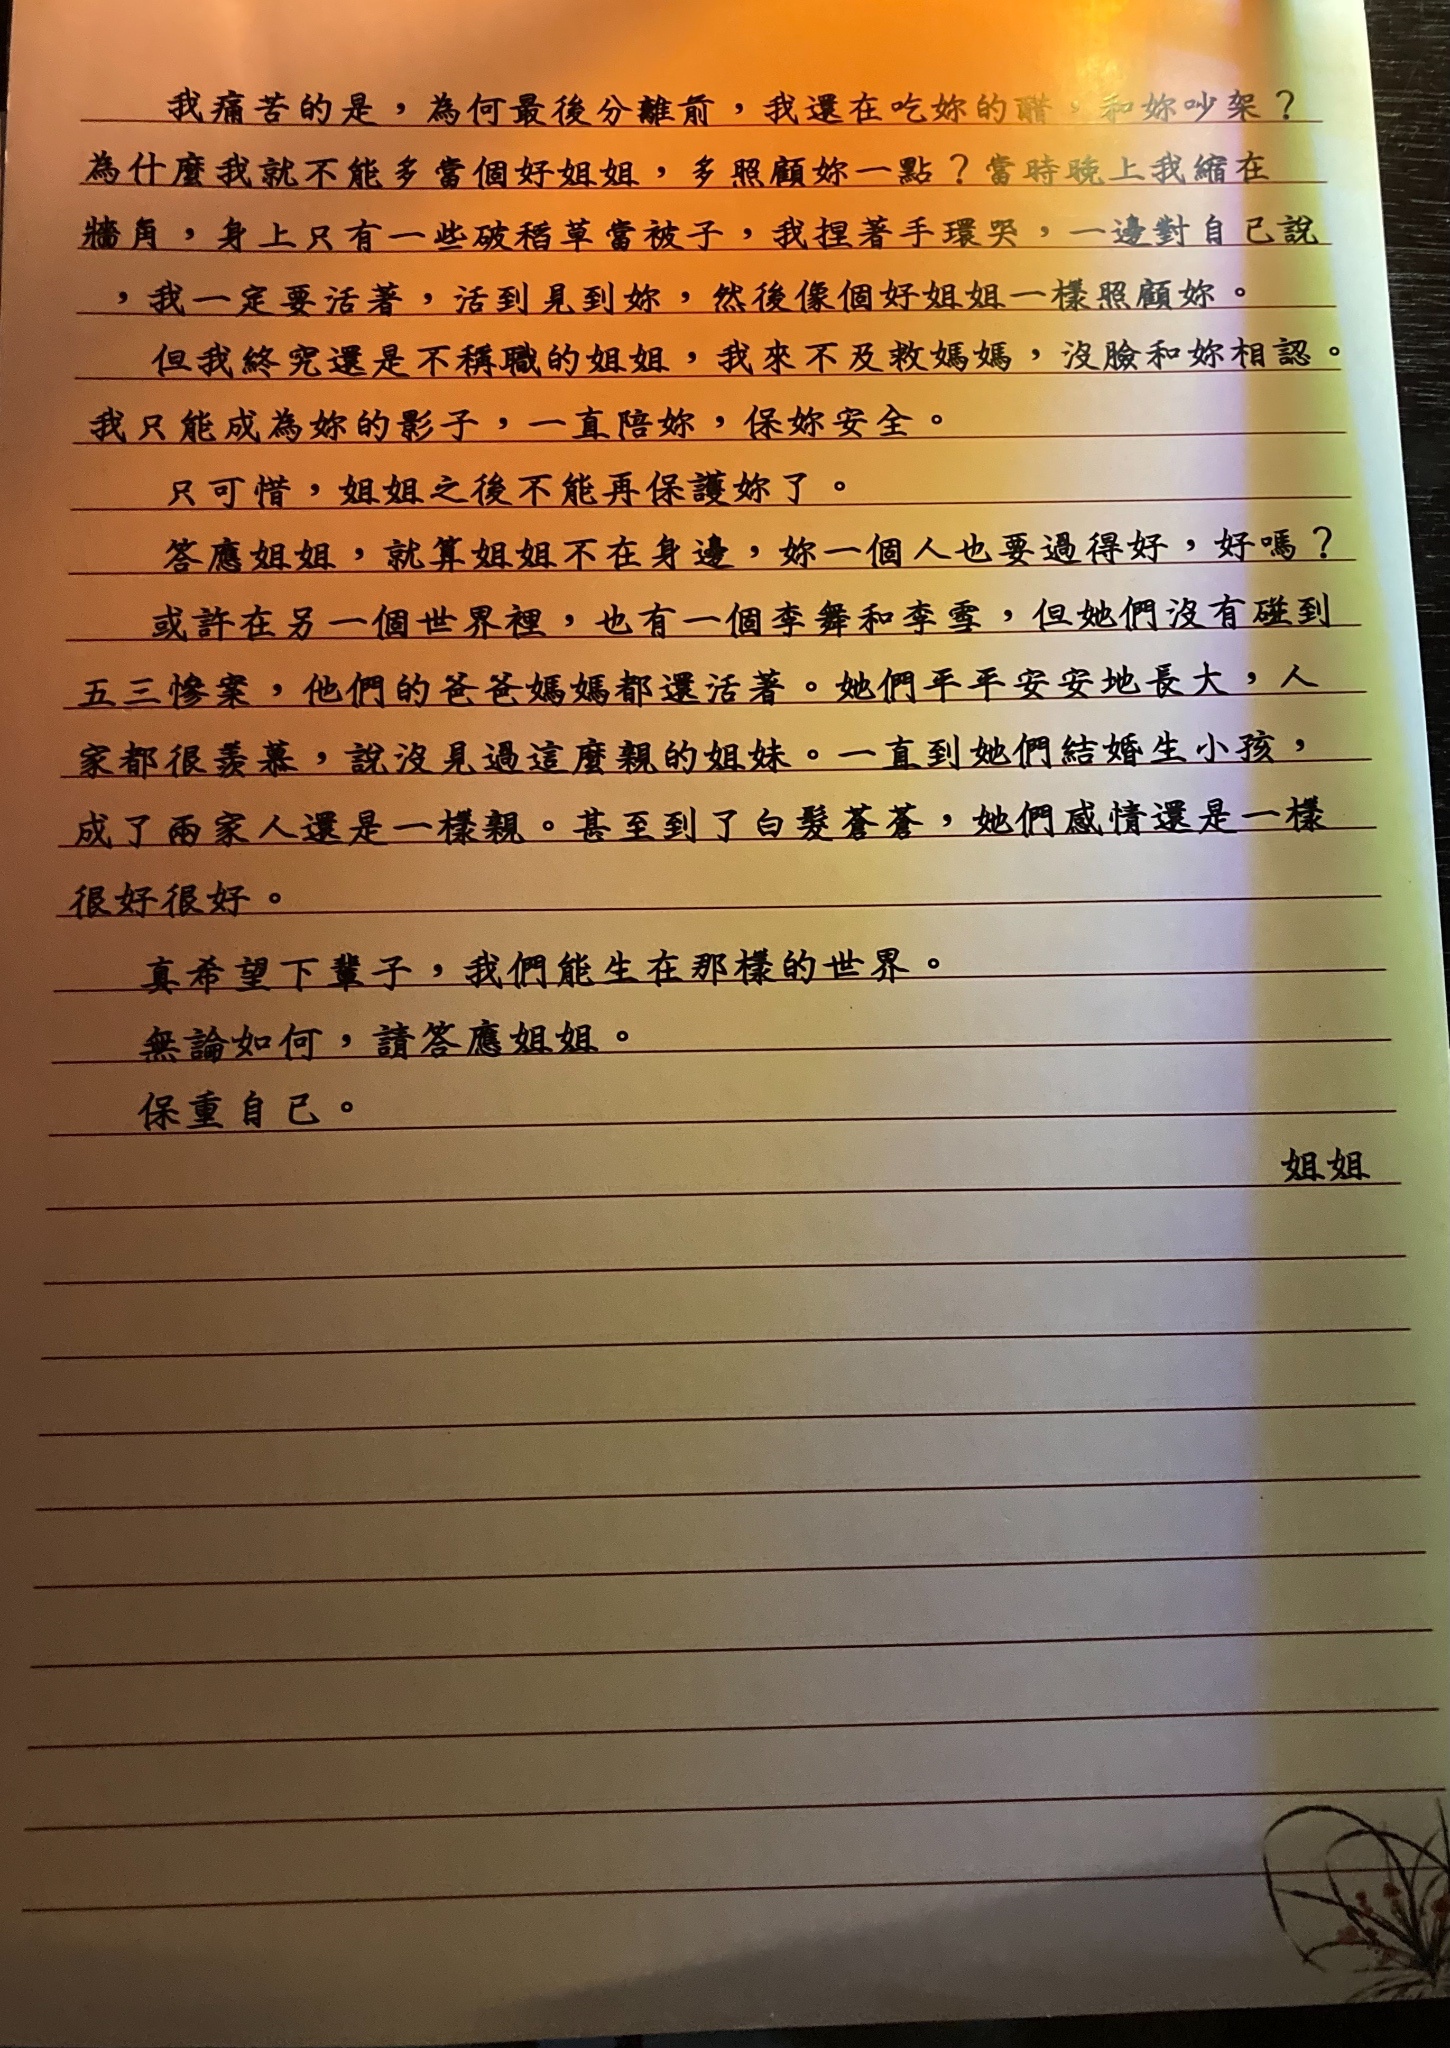 我痛苦的是，為何最後分離前，我還在吃妳的醋，和妳吵架？
為什麼我就不能多當個好姐姐，多照顧妳一點？當時晚上我縮在
牆角，身上只有一些破稻草當被子，我捏著手環哭，一邊對自己說
，我一定要活著，活到見到妳，然後像個好姐姐一樣照顧妳。
但我終究還是不稱職的姐姐，我來不及救媽媽，沒臉和妳相認。
我只能成為妳的影子，一直陪妳，保妳安全。
只可惜，姐姐之後不能再保護妳了。
答應姐姐，就算姐姐不在身邊，妳一個人也要過得好，好嗎？
或許在另一個世界裡，也有一個李舞和李雪，但她們沒有碰到
五三慘案，他們的爸爸媽媽都還活著。她們平平安安地長大，人
家都很羨慕，說沒見過這麼親的姐妹。一直到她們結婚生小孩，
成了兩家人還是一樣親。甚至到了白髮蒼蒼，她們感情還是一樣
很好很好。
真希望下輩子，我們能生在那樣的世界。
無論如何，請答應姐姐。
保重自己。
姐姐